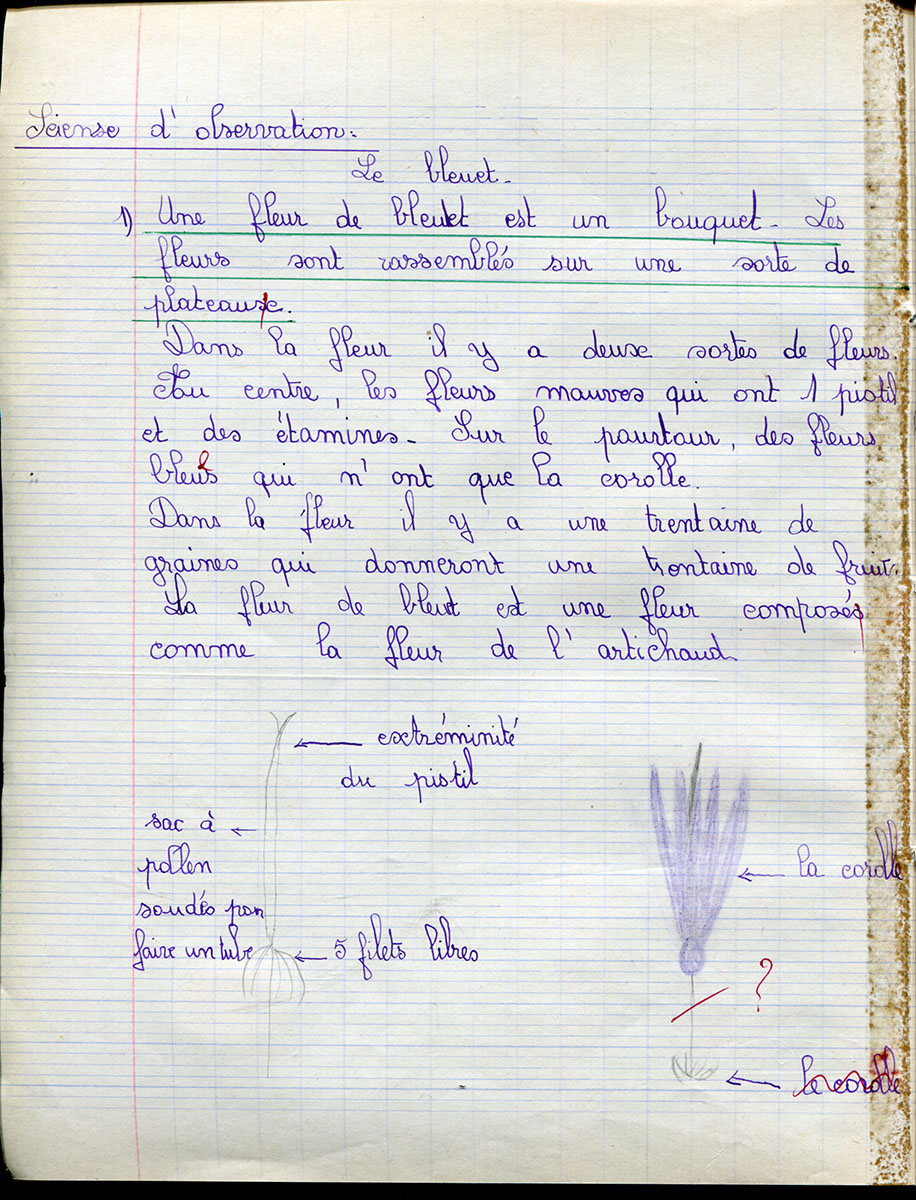 Sciense d'observation.
Le bleuet.
1) Une fleur de bleuet est un bouquet. Les
fleurs sont rassemblés sur une sorte de
plateaux.
Dans la fleur il y a deux sortes de fleurs.
Au centre, les fleurs mauves qui ont 1 pistil
et des étamines. Sur le pourtour, des fleurs
bleus qui n'ont que la corolle.
Dans la fleur il y a une trentaine de
graines qui donneront une trentaine de fruit.
La fleur de bleut est une fleur composés
comme la fleur de l'artichaud
extréminité
du pistil
sac à
pollen
soudés pour
faire un tube
5 filets libres
la corolle
?
la corolle